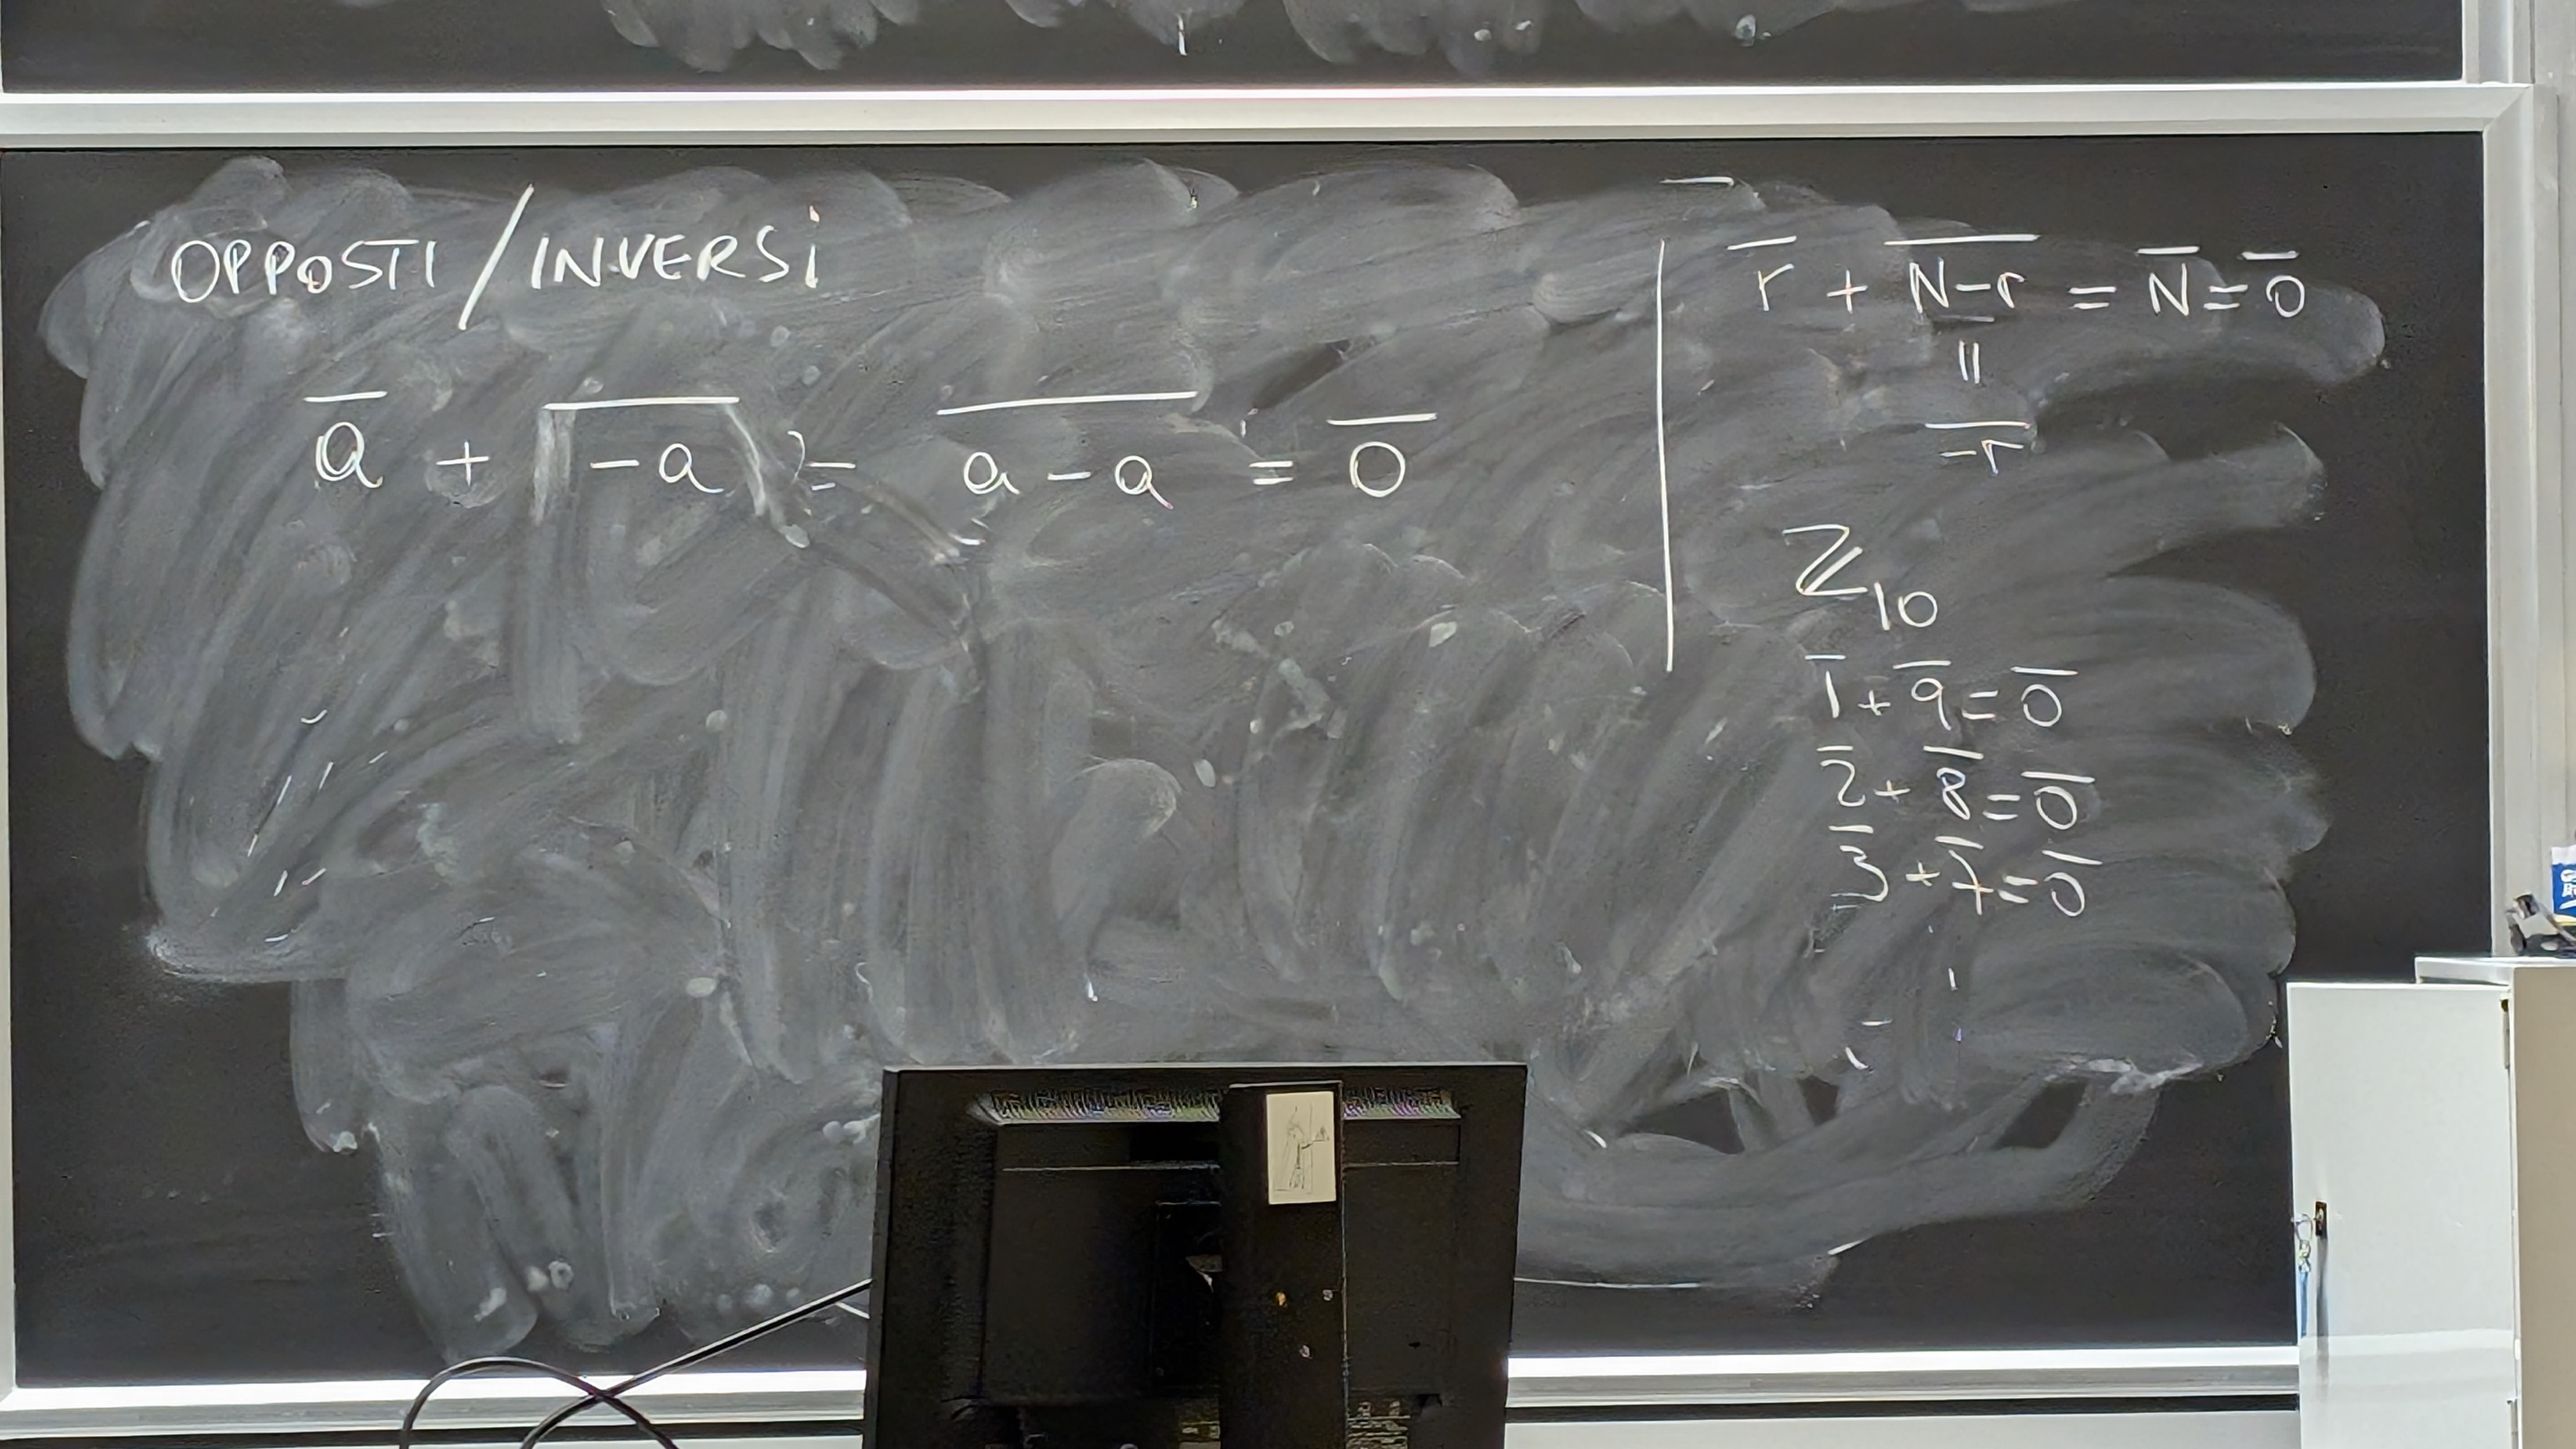 OPPOSTI/INVERSI
a̅ + \overline{-a} = \overline{a-a} = 0̅
r̅ + \overline{N-r} = N̅ = 0̅
||
\overline{-r}
ℤ₁₀
1̅ + 9̅ = 0̅
2̅ + 8̅ = 0̅
3̅ + 7̅ = 0̅